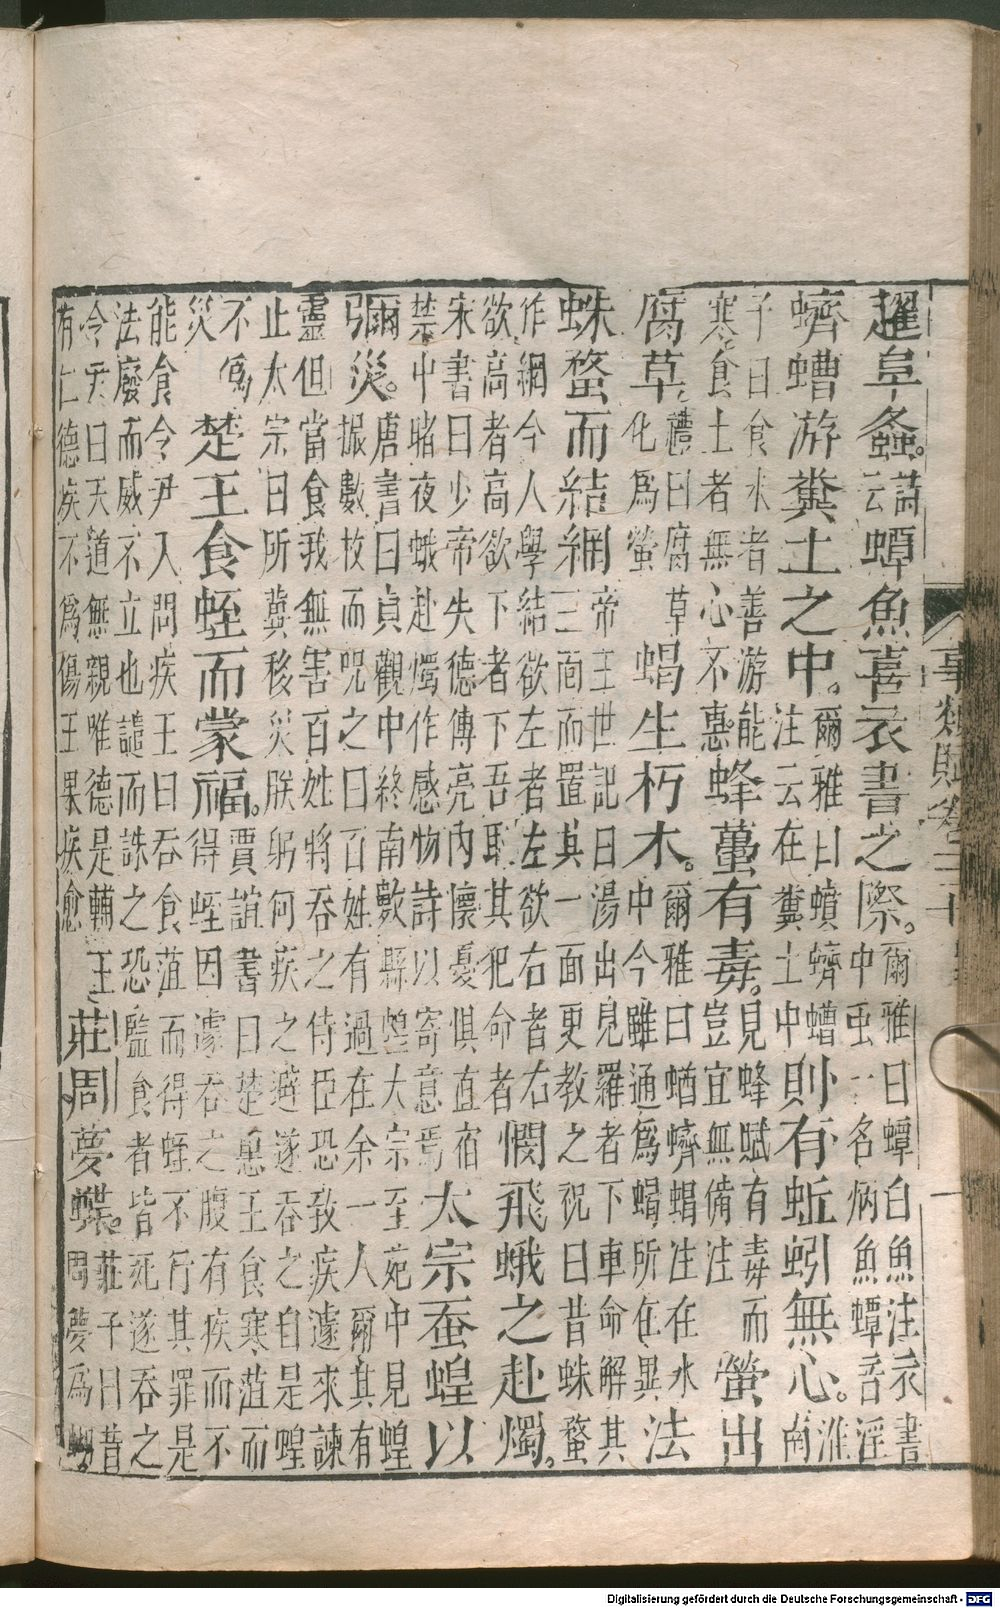 事類賦卷三十
一
趯阜螽。云蟫魚喜衣書之際。爾雅曰蟫白魚注衣書中䖝一名炳魚蟫音淫
蠐螬游糞土之中。爾雅曰蟦蠐螬注云在糞土中則有蚯蚓無心。淮南
子曰食水者善游能寒食土者無心不惠蜂蠆有毒。見蜂賦有毒而豈宜無備注螢出
腐草。禮曰腐草化爲螢蝎生朽木。爾雅曰蝤蠐蝎注在水中今雖通爲蝎所在異法
蛛蝥而結網帝王世記曰湯出見羅者下車命解其三面而置其一面更教之祝曰昔蛛蝥
作網今人學結欲左者左欲右者右欲高者高欲下者下吾取其犯命者憫飛蛾之赴燭。
宋書曰少帝失德傅亮內懷憂惧直宿禁中睹夜蛾赴燭作感物詩以寄意焉太宗吞蝗以
彌災。唐書曰貞觀中終南數縣蝗大宗至苑中見蝗掇數枚而呪之曰百姓有過在余一人爾其有
靈但當食我無害百姓將吞之侍臣恐致疾遽來諫止太宗曰所冀移災朕躬何疾之避遂吞之自是蝗
不爲災楚王食蛭而蒙福。賈誼書曰楚惠王食寒葅而得蛭因遽吞之腹有疾而不
能食令尹入問疾王曰吞食葅而得蛭不行其罪是法廢而威不立也譴而誅之恐監食者皆死遂吞之
令尹曰天道無親唯德是輔王有仁德疾不爲傷王果疾愈莊周夢蝶。莊子曰昔周夢爲蝴
Digitalisierung gefördert durch die Deutsche Forschungsgemeinschaft - DFG